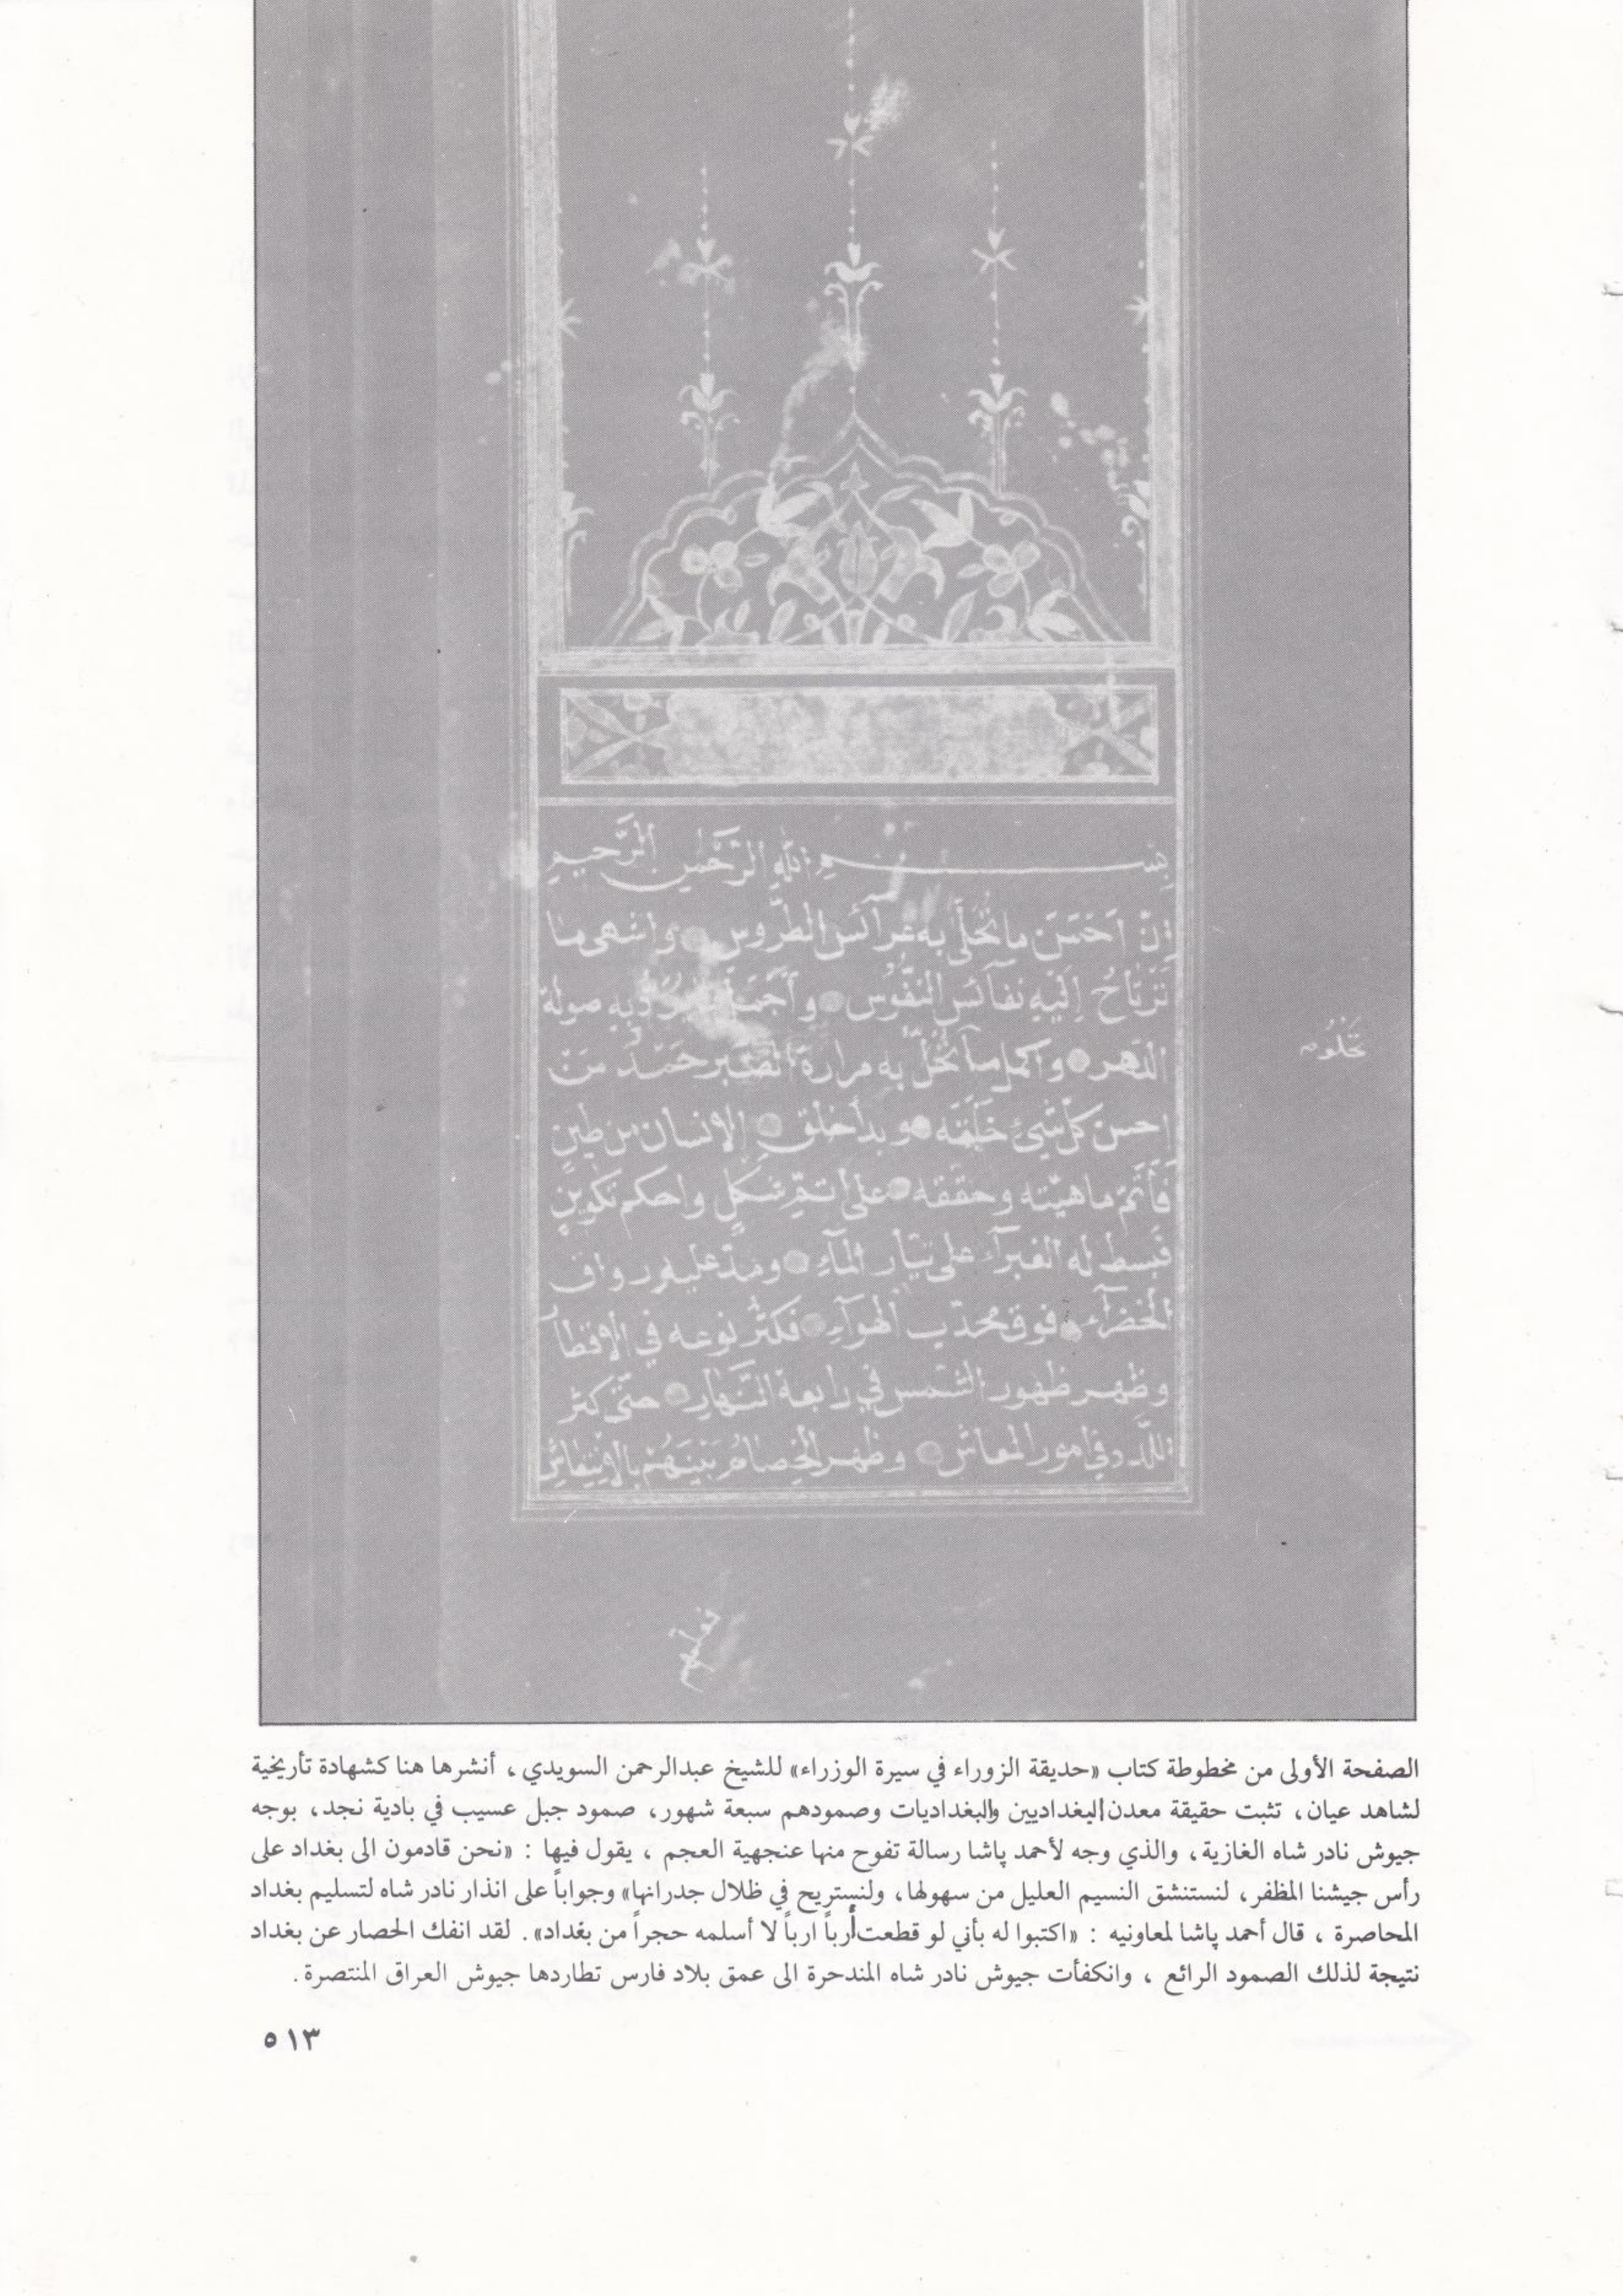 بسم الله الرَّحْمٰنِ الرَّحيمِ
اِنّ اَحْسَنَ ما تُحَلَّى به عَرآئس الطُّروس واشهى ما
تَرْتَاحُ اِلَيْهِ نفآئس النُّفُوس به صولة
الدّهر واكمل ما به مرارة الصّبر حَمْدُ مَنْ
احسن كلّ شيْءٍ خَلَقَه وبدأ خلق الإنسان من طينٍ
فَأَتَمَّ ماهيّته وحقّقه على أتمّ شكلٍ واحكم تكوينٍ
فبسط له الغبرآء على تيّار المآءِ ومدّ عليه رواق
الخضرآء فوق محدّب الهوآءِ فكثُر نوعه في الأقطا
وظهر ظهور الشّمس في رابعة النّهارِ حتّى كثر
اللّدد في امور المعاش وظهر الخِصَامُ بَيْنَهُمْ
الصفحة الأولى من مخطوطة كتاب «حديقة الزوراء في سيرة الوزراء» للشيخ عبدالرحمن السويدي ، أنشرها هنا كشهادة تأريخية
لشاهد عيان، تثبت حقيقة معدن البغداديين والبغداديات وصمودهم سبعة شهور، صمود جبل عسيب في بادية نجد، بوجه
جيوش نادر شاه الغازية، والذي وجه لأحمد پاشا رسالة تفوح منها عنجهية العجم ، يقول فيها : «نحن قادمون الى بغداد على
رأس جيشنا المظفر، لنستنشق النسيم العليل من سهولها، ولنستريح في ظلال جدرانها» وجواباً على انذار نادر شاه لتسليم بغداد
المحاصرة ، قال أحمد پاشا لمعاونيه : «اكتبوا له بأني لو قطعت أرباً ارباً لا أسلمه حجراً من بغداد». لقد انفك الحصار عن بغداد
نتيجة لذلك الصمود الرائع ، وانكفأت جيوش نادر شاه المندحرة الى عمق بلاد فارس تطاردها جيوش العراق المنتصرة .
٥١٣